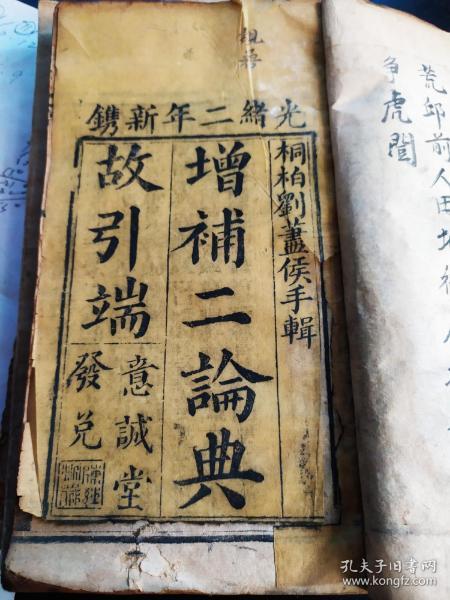 光緒二年新鐫
桐柏劉蓋侯手輯
增補二論典
故引端
意誠堂
發兌
荒邱前人田地
爭虎闈
孔夫子旧书网
www.kongfz.com